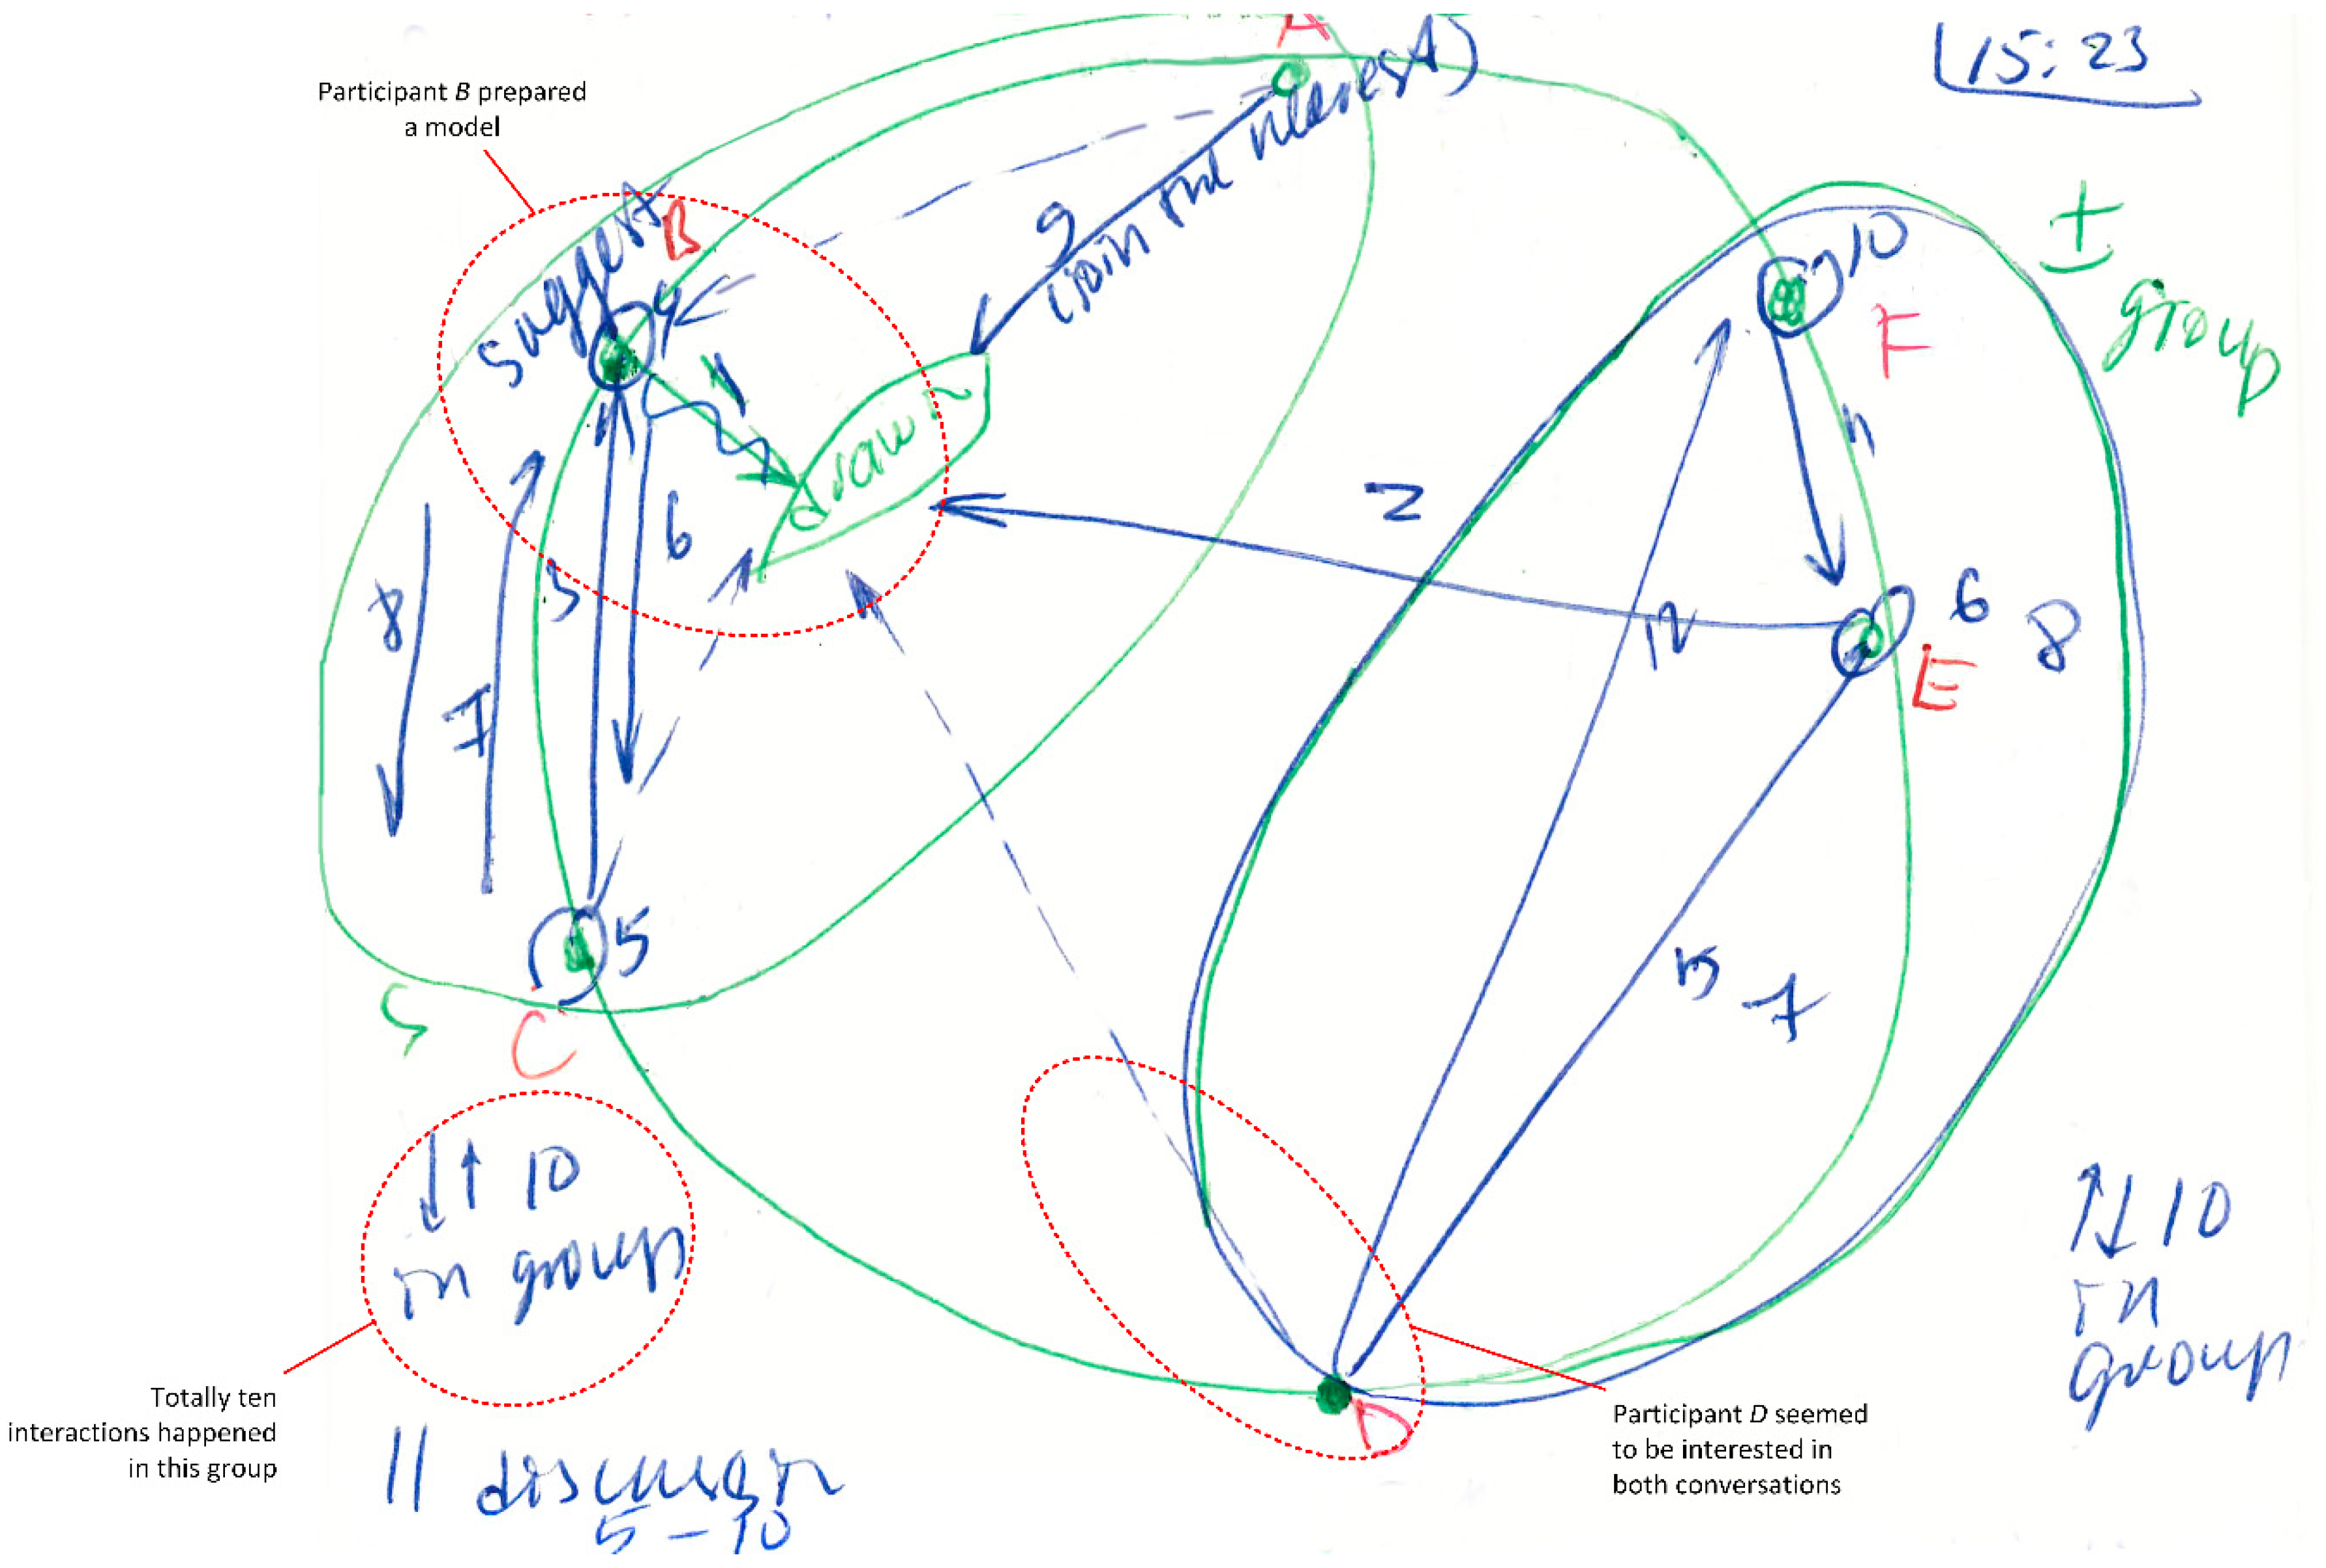 A
15:23
Participant B prepared
a model
9
(join and interest)
suggest
B
4
10
±
group
F
draw
2
6
5
8
7
12
6
8
E
5
C
7
10
in group
10
in
group
D
Totally ten
interactions happened
in this group
Participant D seemed
to be interested in
both conversations
|| discussion
5 – 10